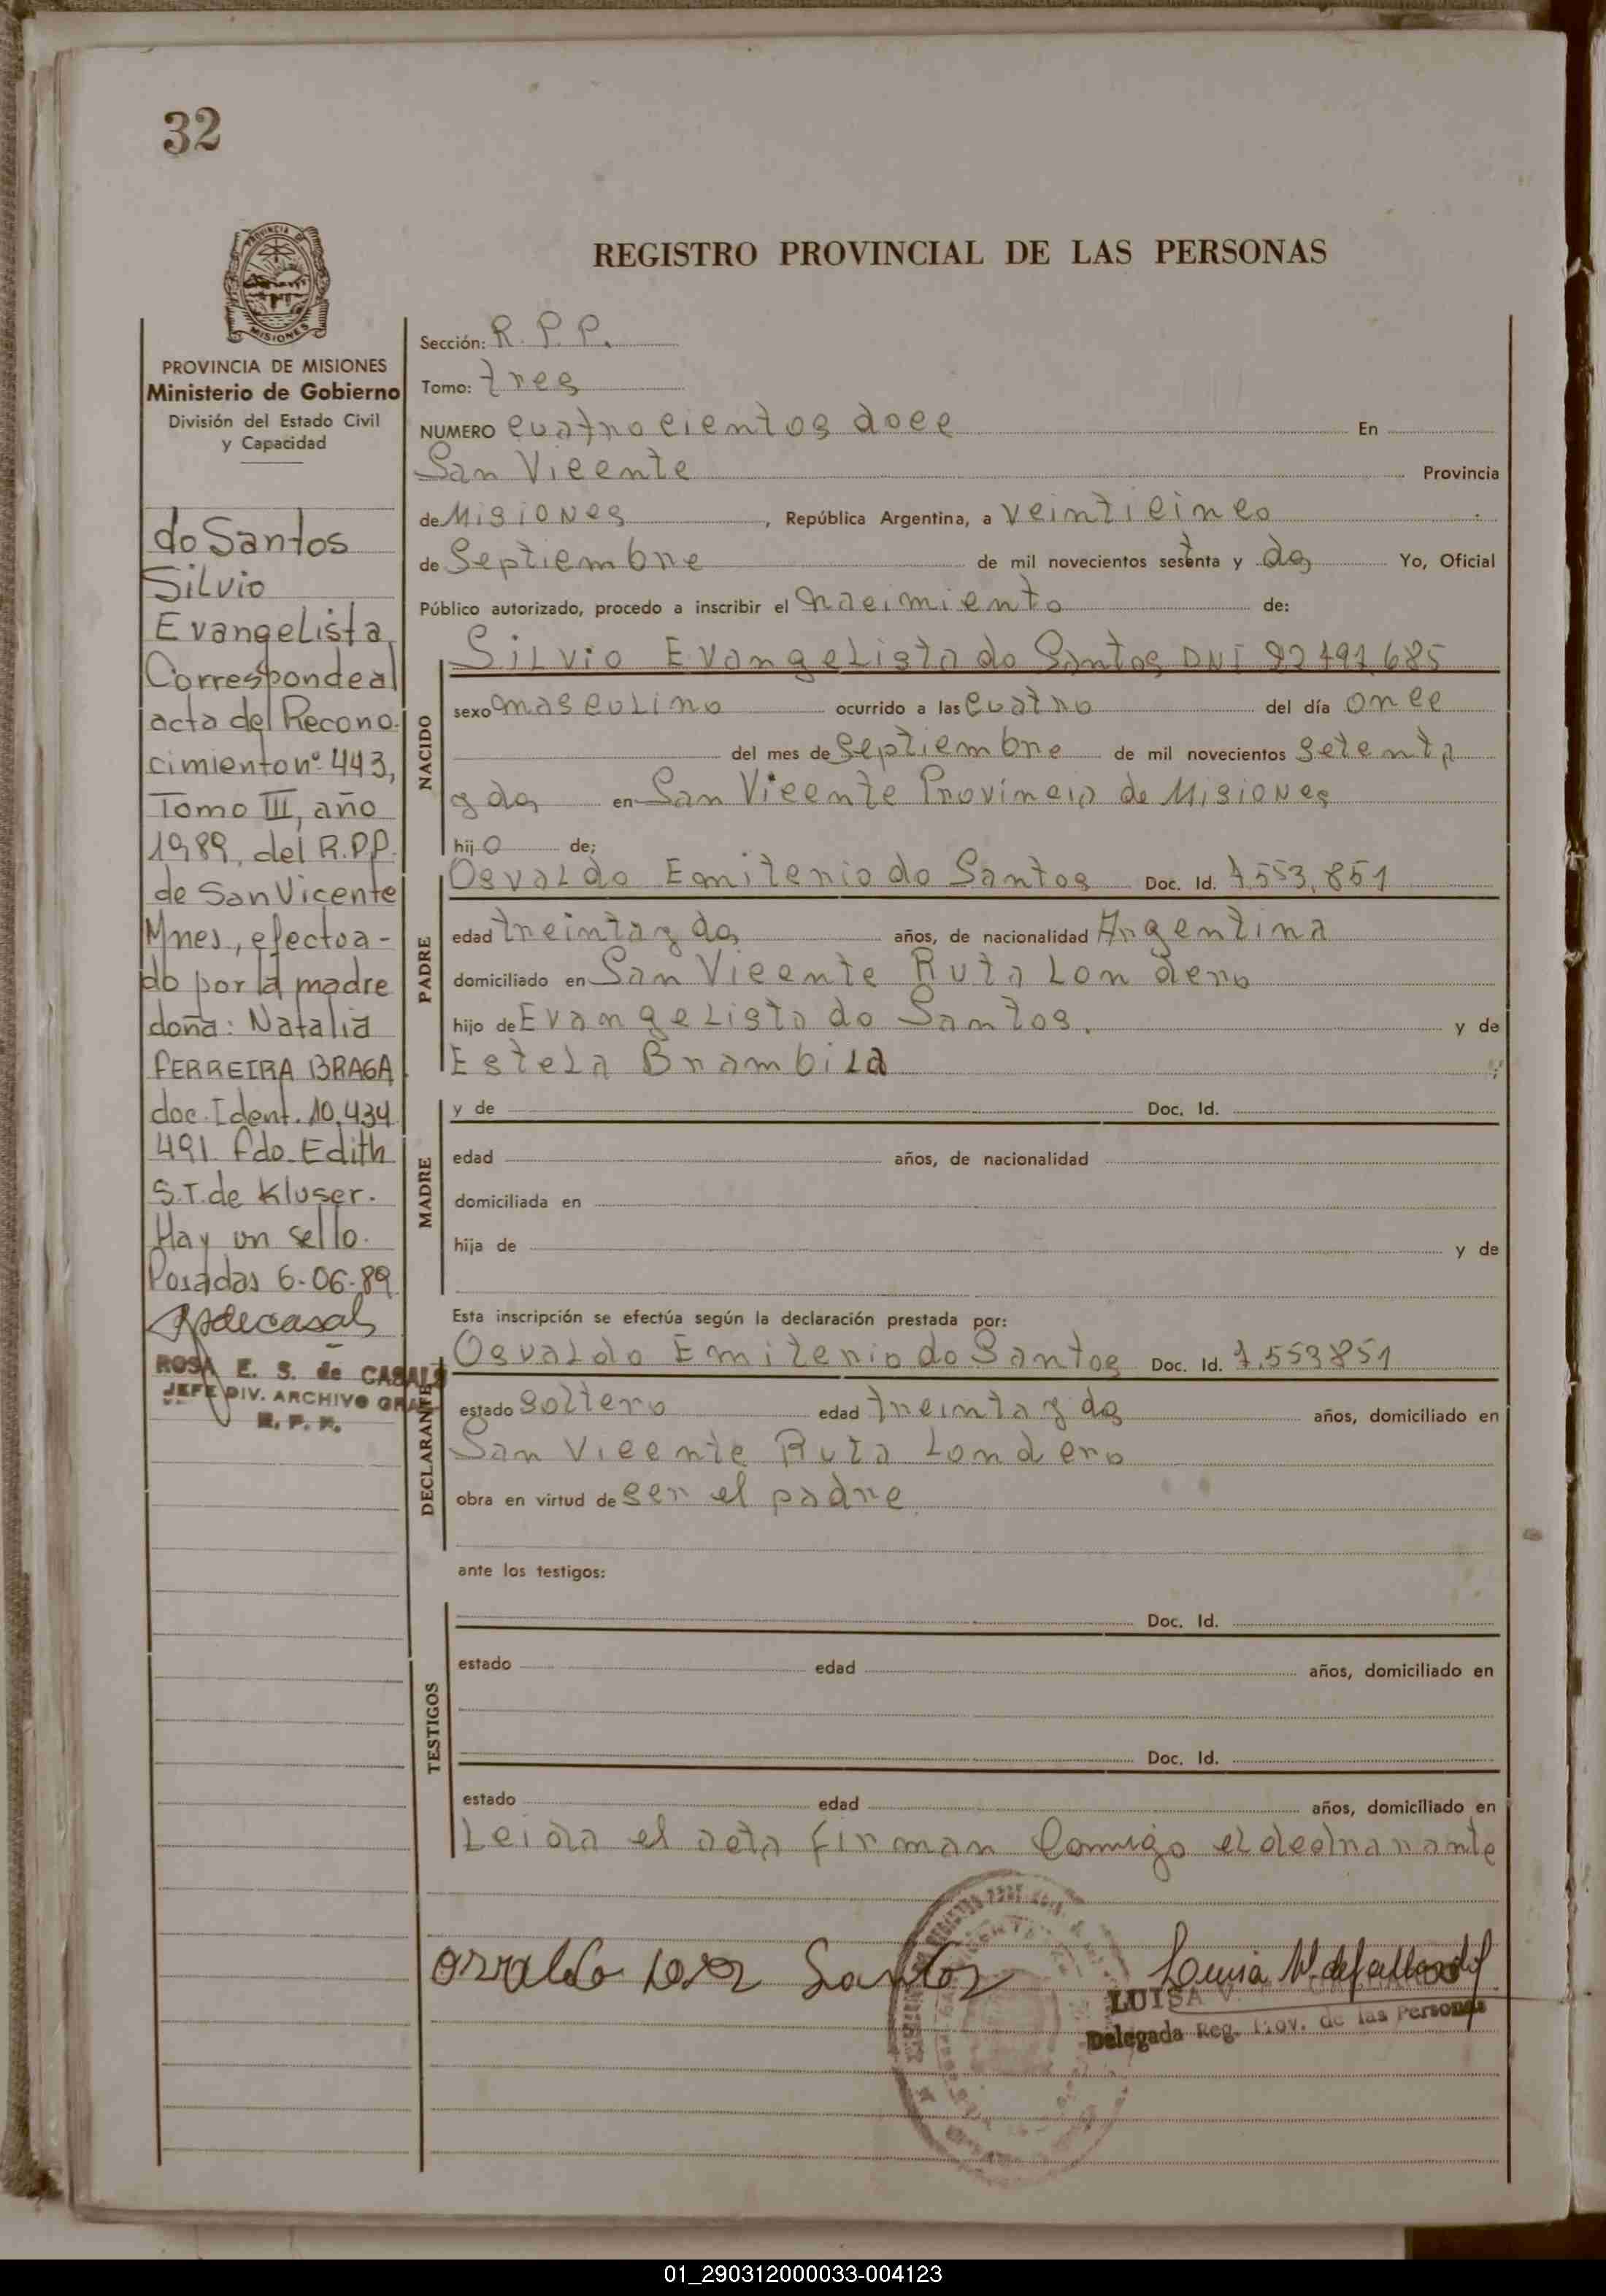 32
REGISTRO PROVINCIAL DE LAS PERSONAS
PROVINCIA DE
MISIONES
PROVINCIA DE MISIONES
Ministerio de Gobierno
División del Estado Civil
y Capacidad
do Santos
Silvio
Evangelista
Corresponde al
acta del Recono-
cimiento nº 443,
Tomo III, año
1989, del R.P.P.
de San Vicente
Mnes, efectoa-
do por la madre
doña: Natalia
FERREIRA BRAGA
doc. Ident. 10.434
491 fdo. Edith
S.T. de Kluser.
Hay un sello.
Posadas 6-06-89
ROSA E. S. de CASALS
JEFE DIV. ARCHIVO GRAL
R. P. P.
Sección: R. P. P.
Tomo: tres
NUMERO cuatrocientos doce En
San Vicente Provincia
de Misiones, República Argentina, a veinticinco
de Septiembre de mil novecientos setenta y dos Yo, Oficial
Público autorizado, procedo a inscribir el nacimiento de:
NACIDO
Silvio Evangelista do Santos DNI 92 791 685
sexo masculino ocurrido a las cuatro del día once
del mes de Septiembre de mil novecientos setenta
y dos en San Vicente Provincia de Misiones
hijo de;
PADRE
Osvaldo Emiterio do Santos Doc. Id. 7.553.851
edad treinta y dos años, de nacionalidad Argentina
domiciliado en San Vicente Ruta Londero
hijo de Evangelista do Santos. y de
Estela Brambila
MADRE
y de Doc. Id.
edad años, de nacionalidad
domiciliada en
hija de y de
Esta inscripción se efectúa según la declaración prestada por:
DECLARANTE
Osvaldo Emiterio do Santos Doc. Id. 7.553851
estado soltero edad treinta y dos años, domiciliado en
San Vicente Ruta Londero
obra en virtud de ser el padre
ante los testigos:
TESTIGOS
Doc. Id.
estado edad años, domiciliado en
Doc. Id.
estado edad años, domiciliado en
Leida el acta firman Comigo el declarante
Osvaldo Santos
Luisa
LUISA V.
Delegada Reg. Prov. de las Personas
01_290312000033-004123